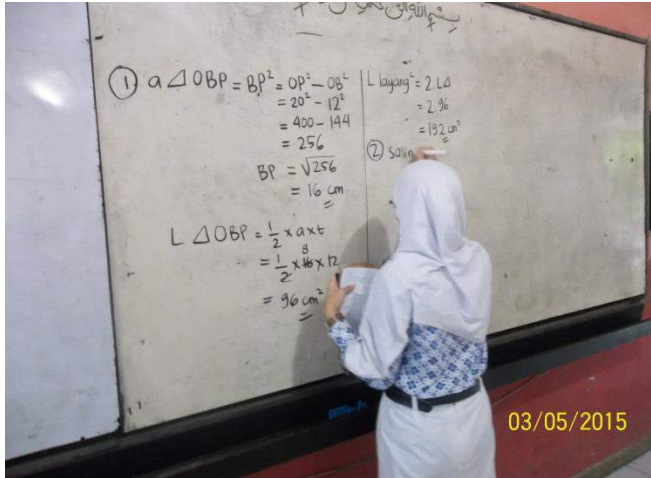 ① a △ OBP = BP² = OP² - OB²
= 20² - 12²
= 400 - 144
= 256
BP = √256
= 16 cm
L △ OBP = 1/2 x a x t
= 1/2 x 16 x 12
8
= 96 cm²
L layang² = 2. L△
= 2. 96
= 192 cm²
② Salin
03/05/2015